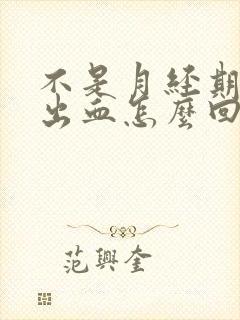 不是月经期
出血怎麽回
范興奎